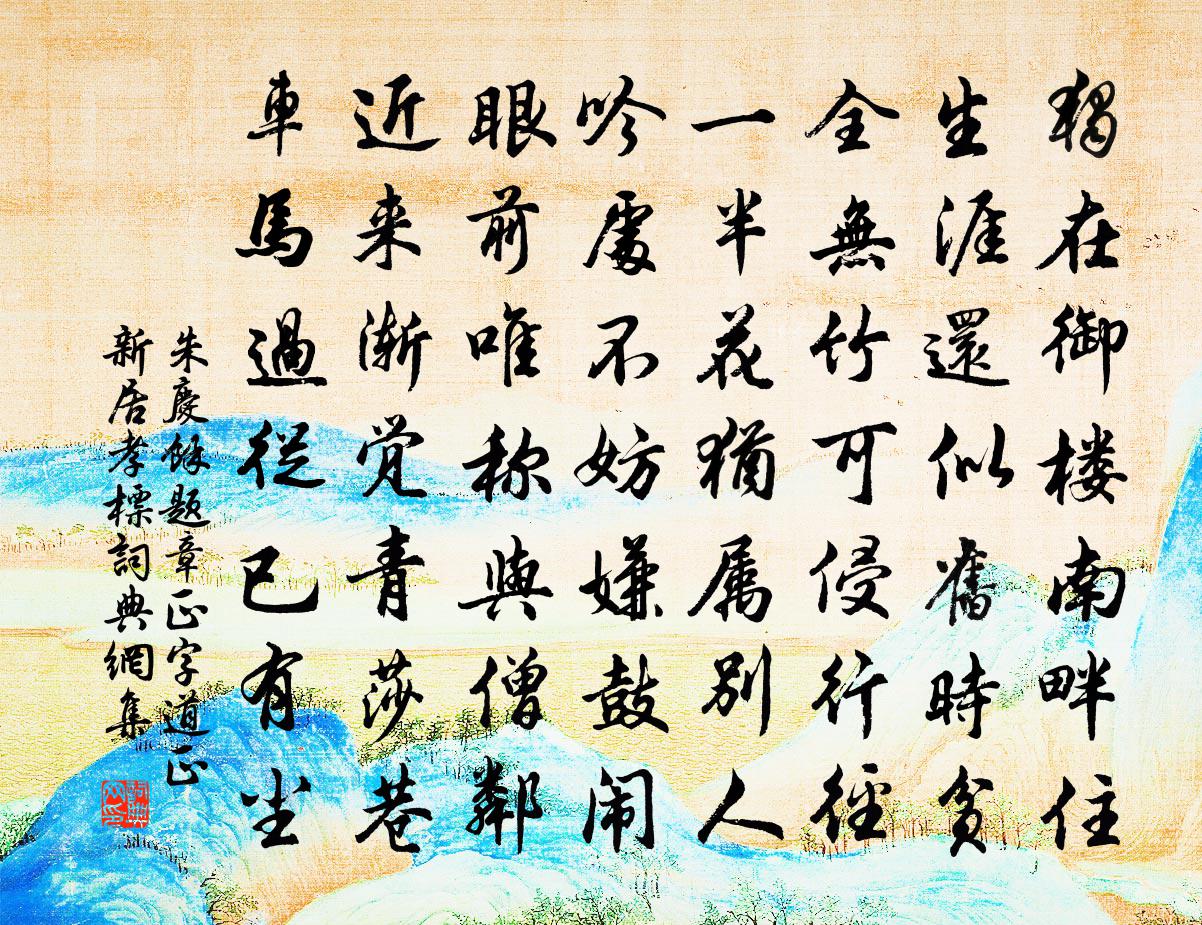 獨在御楼南畔住
生涯還似舊時貧
全無竹可侵行徑
一半花猶属别人
吟處不妨嫌鼓闹
眼前唯称與僧鄰
近来渐觉青莎巷
車馬過從已有尘
朱慶餘题章正字道正
新居孝標詞典網集